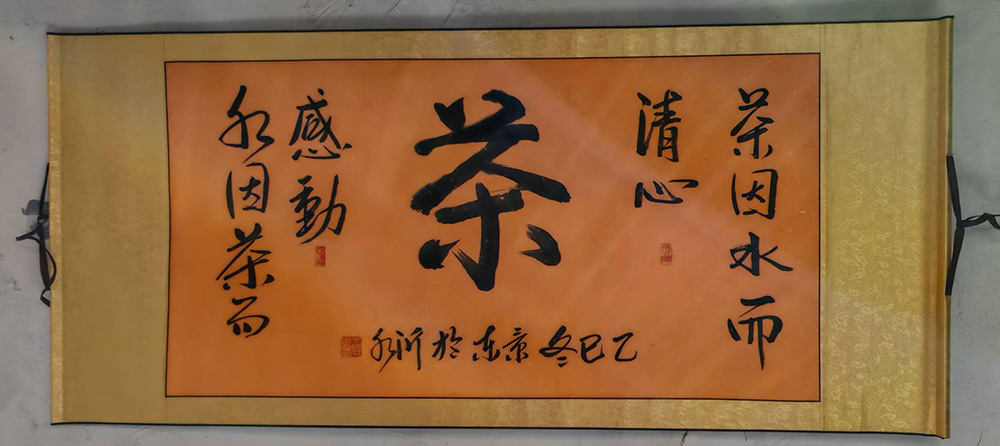 茶因水而
清心
茶
水因茶而
感動
乙巳冬景东於沂水